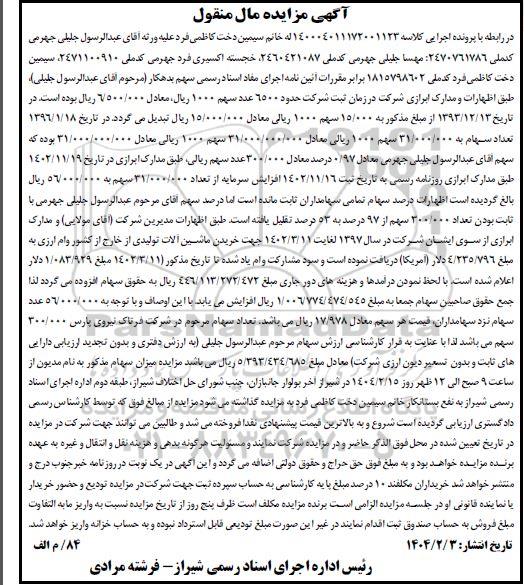 آگهی مزایده مال منقول
در رابطه با پرونده اجرایی کلاسه ۱۴۰۰۰۴۰۱۱۱۷۲۰۰۱۱۲۳ له خانم سیمین دخت کاظمی فرد علیه ورثه آقای عبدالرسول جلیلی جهرمی
کدملی ۲۴۷۰۷۶۱۷۸۶: مهسا جلیلی جهرمی کدملی ۲۴۶۰۴۲۱۰۸۷، خجسته اکسیری فرد جهرمی کدملی ۲۴۷۱۱۰۰۹۱۰، سیمین
دخت کاظمی فرد کدملی ۱۸۱۵۷۹۸۶۰۲ برابر مقررات آئین نامه اجرای مفاد اسناد رسمی سهم بدهکار (مرحوم آقای عبدالرسول جلیلی)،
طبق اظهارات و مدارک ابرازی شرکت در زمان ثبت شرکت حدود ۶۵۰۰ عدد سهم ۱۰۰۰ ریال، معادل ۶/۵۰۰/۰۰۰ ریال بوده است. در
تاریخ ۱۳۹۳/۱۲/۱۳ از مبلغ مذکور به ۱۵/۰۰۰ سهم ۱۰۰۰ ریالی معادل ۱۵/۰۰۰/۰۰۰ ریال تبدیل می گردد. در تاریخ ۱۳۹۶/۱/۱۸
تعداد سهام به ۳۱/۰۰۰/۰۰۰ سهم ۱۰۰۰ ریالی معادل ۳۱/۰۰۰/۰۰۰/۰۰۰ سهم ۱۰۰۰ ریالی معادل ۳۱/۰۰۰/۰۰۰/۰۰۰ بوده که
سهم آقای عبدالرسول جلیلی جهرمی معادل ۰/۹۷ درصد معادل ۳۰۰/۰۰۰ عدد سهم ریالی، طبق مدارک ابرازی در تاریخ ۱۴۰۲/۱۱/۱۹
طبق مدارک ابرازی روزنامه رسمی به تاریخ ثبت ۱۴۰۲/۱۱/۱۶ افزایش سرمایه از تعداد ۳۱/۰۰۰/۰۰۰ سهم به ۵۶/۰۰۰/۰۰۰ ریال
بالغ گردیده است اظهارات درصد سهام تمامی سهامداران ثابت مانده است اما درصد سهم آقای مرحوم عبدالرسول جلیلی جهرمی با
ثابت بودن تعداد ۳۰۰/۰۰۰ سهم از ۹۷ درصد به ۵۳ درصد تقلیل یافته است. طبق اظهارات مدیرین شرکت (آقای مولایی) و مدارک
ابرازی از سوی ایشان شرکت در سال ۱۳۹۷ لغایت ۱۴۰۲/۳/۱۱ جهت خریدن ماشین آلات تولیدی از خارج از کشور وام ارزی به
مبلغ ۴/۲۳۵/۷۹۶ دلار (آمریکا) دریافت نموده است و سود مشارکت وام یاد شده تا تاریخ مذکور (۱۴۰۲/۳/۱۱) مبلغ ۱/۰۸۳/۹۳۹ دلار
اعلام شده است. با لحظ نمودن درآمدها و هزینه های دور جاری مبلغ ۴۴۶/۱۱۳/۲۷۲/۴۷۲ ریال به حقوق سهام افزوده می گردد لذا
جمع حقوق صاحبین سهام جمعا به مبلغ ۱/۰۰۶/۷۷۴/۴۷۴/۵۴۵ ریال افزایش می یابد. با این اوصاف و با توجه به ۵۶/۰۰۰/۰۰۰ عدد
سهام نزد سهامداران، قیمت هر سهم معادل ۱۷/۹۷۸ ریال می باشد. تعداد سهام مرحوم در شرکت فرتاک نیروی پارس ۳۰۰/۰۰۰
سهم می باشد لذا با عنایت به قرار کارشناسی ارزش سهام مرحوم عبدالرسول جلیلی (به ارزش دفتری و بدون تجدید ارزیابی دارایی
های ثابت و بدون تسعیر دیون ارزی شرکت) معادل مبلغ ۵/۳۹۳/۴۳۴/۶۸۵ ریال می باشد مزایده میزان سهام مذکور به نام مدیون از
ساعت ۹ صبح الی ۱۲ ظهر روز ۱۴۰۴/۲/۱۵ در شیراز آخر بولوار جانبازان، جنب شورای حل اختلاف شیراز، طبقه دوم اداره اجرای اسناد
رسمی شیراز به نفع بستانکار خانم سیمین دخت کاظمی فرد به مزایده گذاشته می شود مزایده از مبالغ فوق که توسط کارشناس رسمی
دادگستری ارزیابی گردیده است شروع و به بالاترین قیمت پیشنهادی نقدا فروخته می شد و طالبین می توانند جهت شرکت در مزایده
در تاریخ تعیین شده در محل فوق الذکر حاضر و در مزایده شرکت نمایند و مسئولیت هرگونه بدهی و هزینه نقل و انتقال و غیره به عهده
برنده مزایده خواهد بود و به مبلغ فوق حق حراج و حقوق دولتی اضافه می گردد و این آگهی در یک نوبت در روزنامه خبر جنوب درج و
منتشر خواهد شد خریداران مکلفند ۱۰ درصد مبلغ پایه کارشناسی به حساب سپرده ثبت جهت شرکت در مزایده تودیع و حضور خریدار
یا نماینده قانونی او در جلسه مزایده الزامی است برنده مزایده مکلف است ظرف پنج روز از تاریخ مزایده نسبت به واریز مابه التفاوت
مبلغ فروش به حساب صندوق ثبت اقدام نمایند در غیر این صورت مبلغ تودیعی قابل استرداد نبوده و به حساب خزانه واریز خواهد شد.
تاریخ انتشار: ۱۴۰۴/۲/۳ ۸۴/ م الف
رئیس اداره اجرای اسناد رسمی شیراز- فرشته مرادی